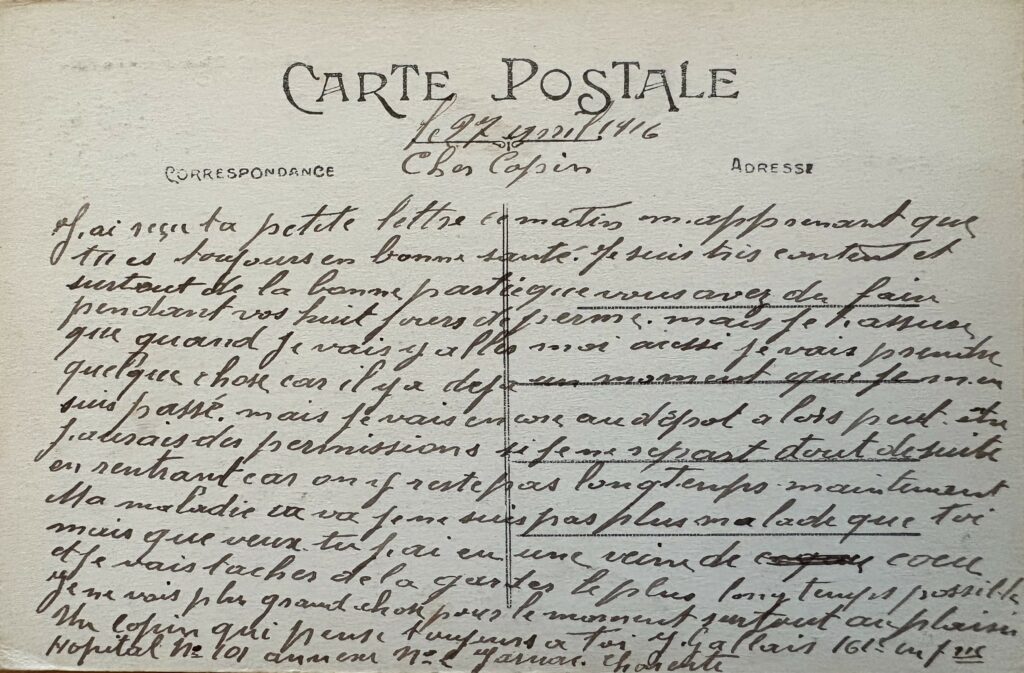 CARTE POSTALE
le 27 avril 1916
CORRESPONDANCE
Cher Copin
ADRESSE
J,ai reçu ta petite lettre ce matin m,apprenant que
tu es toujours en bonne santé. Je suis tris content et
surtout de la bonne partie que vous avez du fair
pendant vos huit jours de perme. mais je t,assure
que quand je vais y aller moi aussi je vais prendre
quelque chose car il y a deja un moment que je m,en
suis passé. mais je vais encore au dépot alors peut. être
j,aurais des permissions si je ne repart tout de suite
en rentrant car on y reste pas longtemps maintenant
Ma maladie va je ne suis pas plus malade que toi
mais que veux. tu j,ai eu une veine de cocu
et je vais tacher de la garder le plus longtemps possible
je ne vois plus grand chose pour le moment surtout au plaisir
Un copin qui pense toujours a toi 161e
Hopital No 101 annexe No Jarnac. Charente